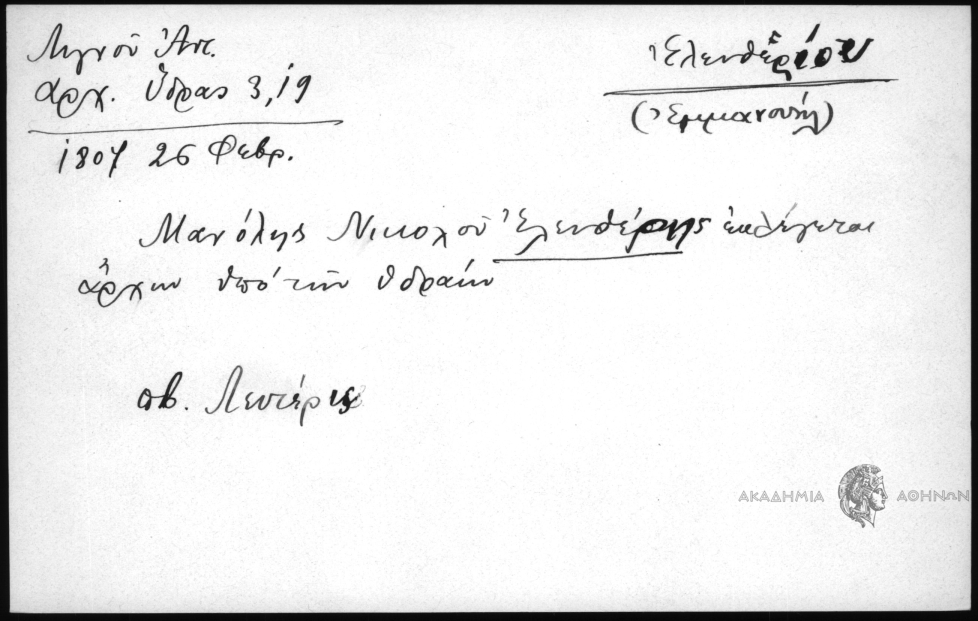 Λιγνοῦ Ἀντ.
ἀρχ. Ὕδρας 3,19
1807 26 Φεβρ.
Ἐλευθερίου
(Ἐμμανουήλ)
Μανόλης Νικολοῦ Ἐλευθέρης ἐκλέγεται
ἄρχων ὑπὸ τῶν Ὑδραίων
πβ. Λευτέρης
ΑΚΑΔΗΜΙΑ ΑΘΗΝΩΝ